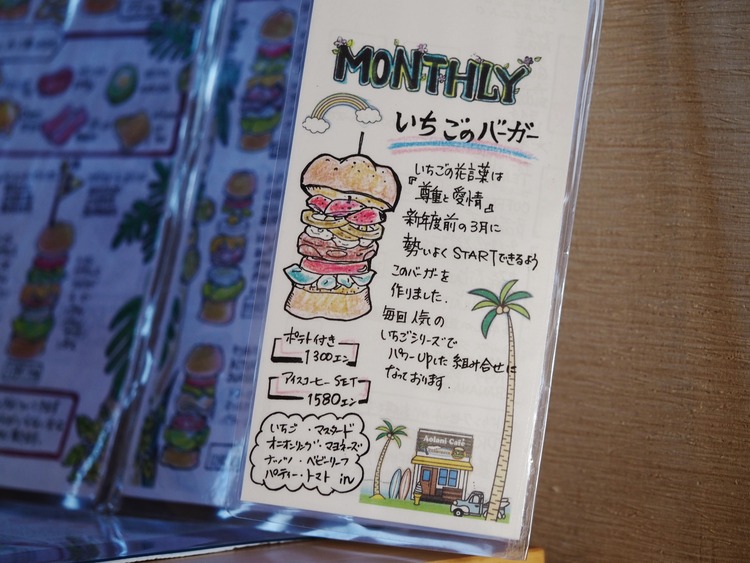 MONTHLY
いちごのバーガー
いちごの花言葉は
『尊重と愛情』
新年度前の3月に
勢いよくSTARTできるよう
このバーガーを
作りました.
毎回人気の
いちごシリーズで
パワーUPした組み合せに
なっております.
ポテト付き
1300エン
アイスコーヒーSET
1580エン
いちご・マスタード
オニオンリング・マヨネーズ
ナッツ・ベビーリーフ
パティー・トマト in
Aolani Café